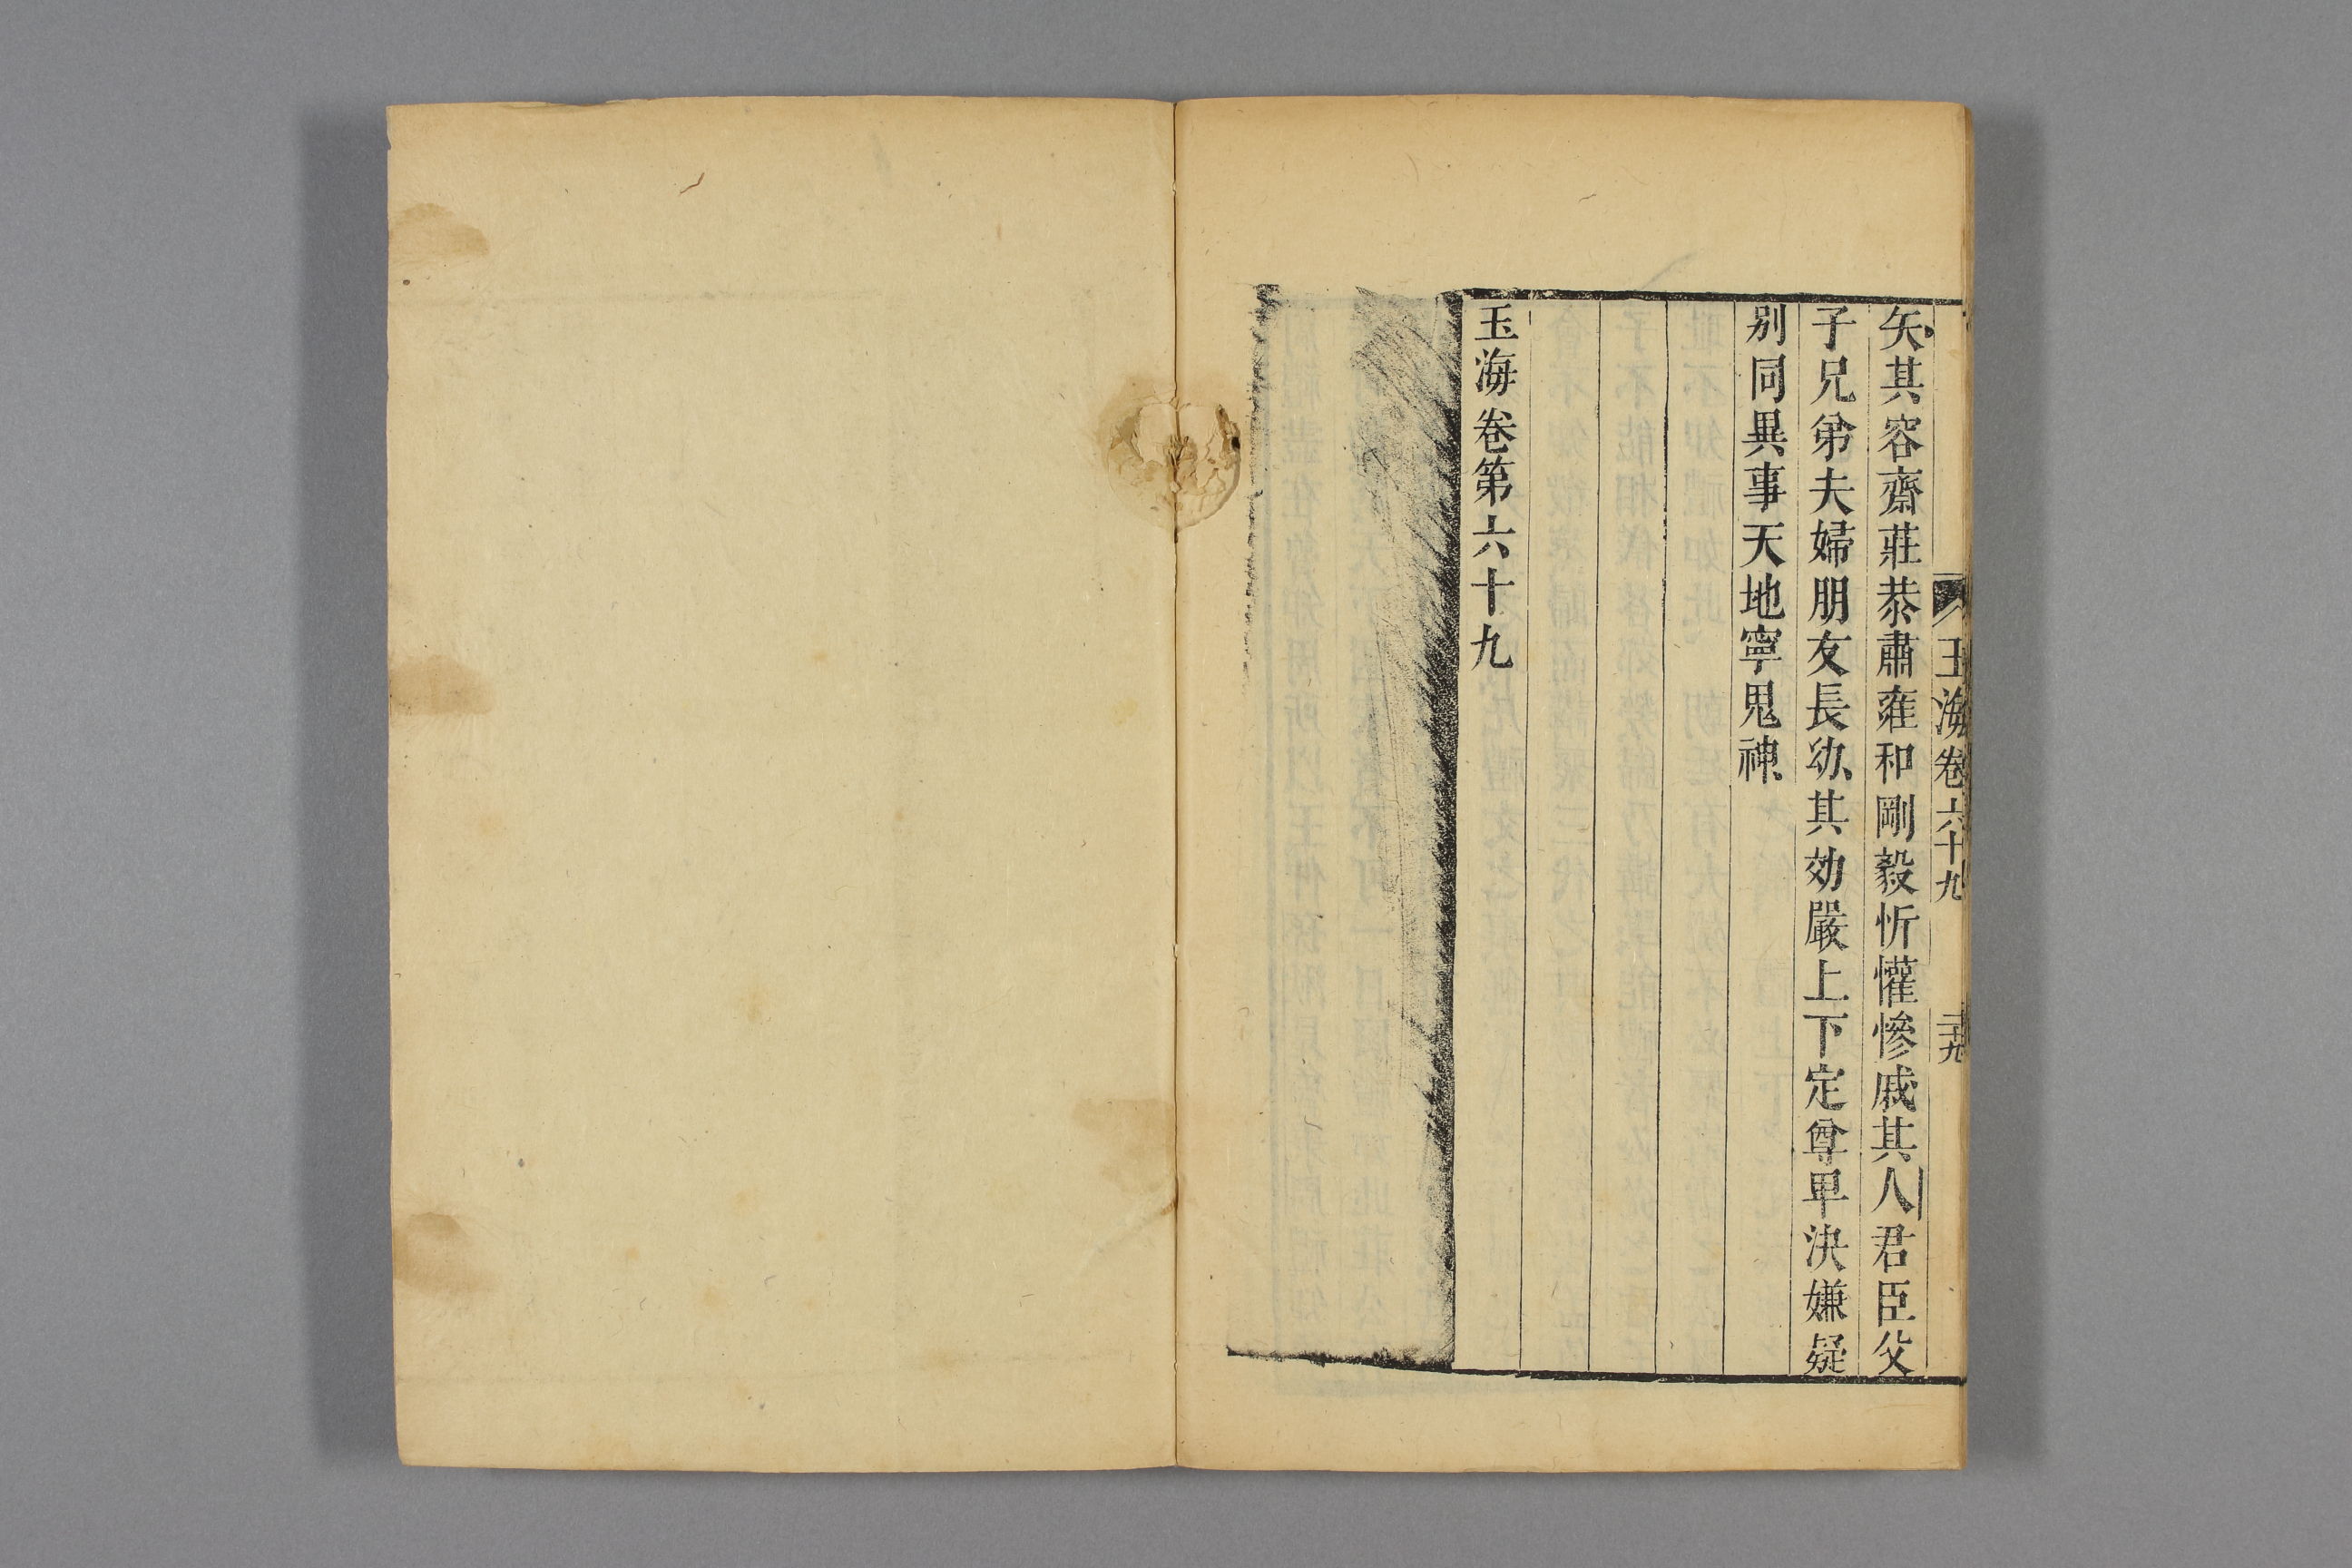 玉海卷六十九 三十九
矣其容齋莊恭肅雍和剛毅忻懽慘戚其人君臣父
子兄弟夫婦朋友長幼其効嚴上下定尊卑決嫌疑
別同異事天地寧鬼神
玉海卷第六十九